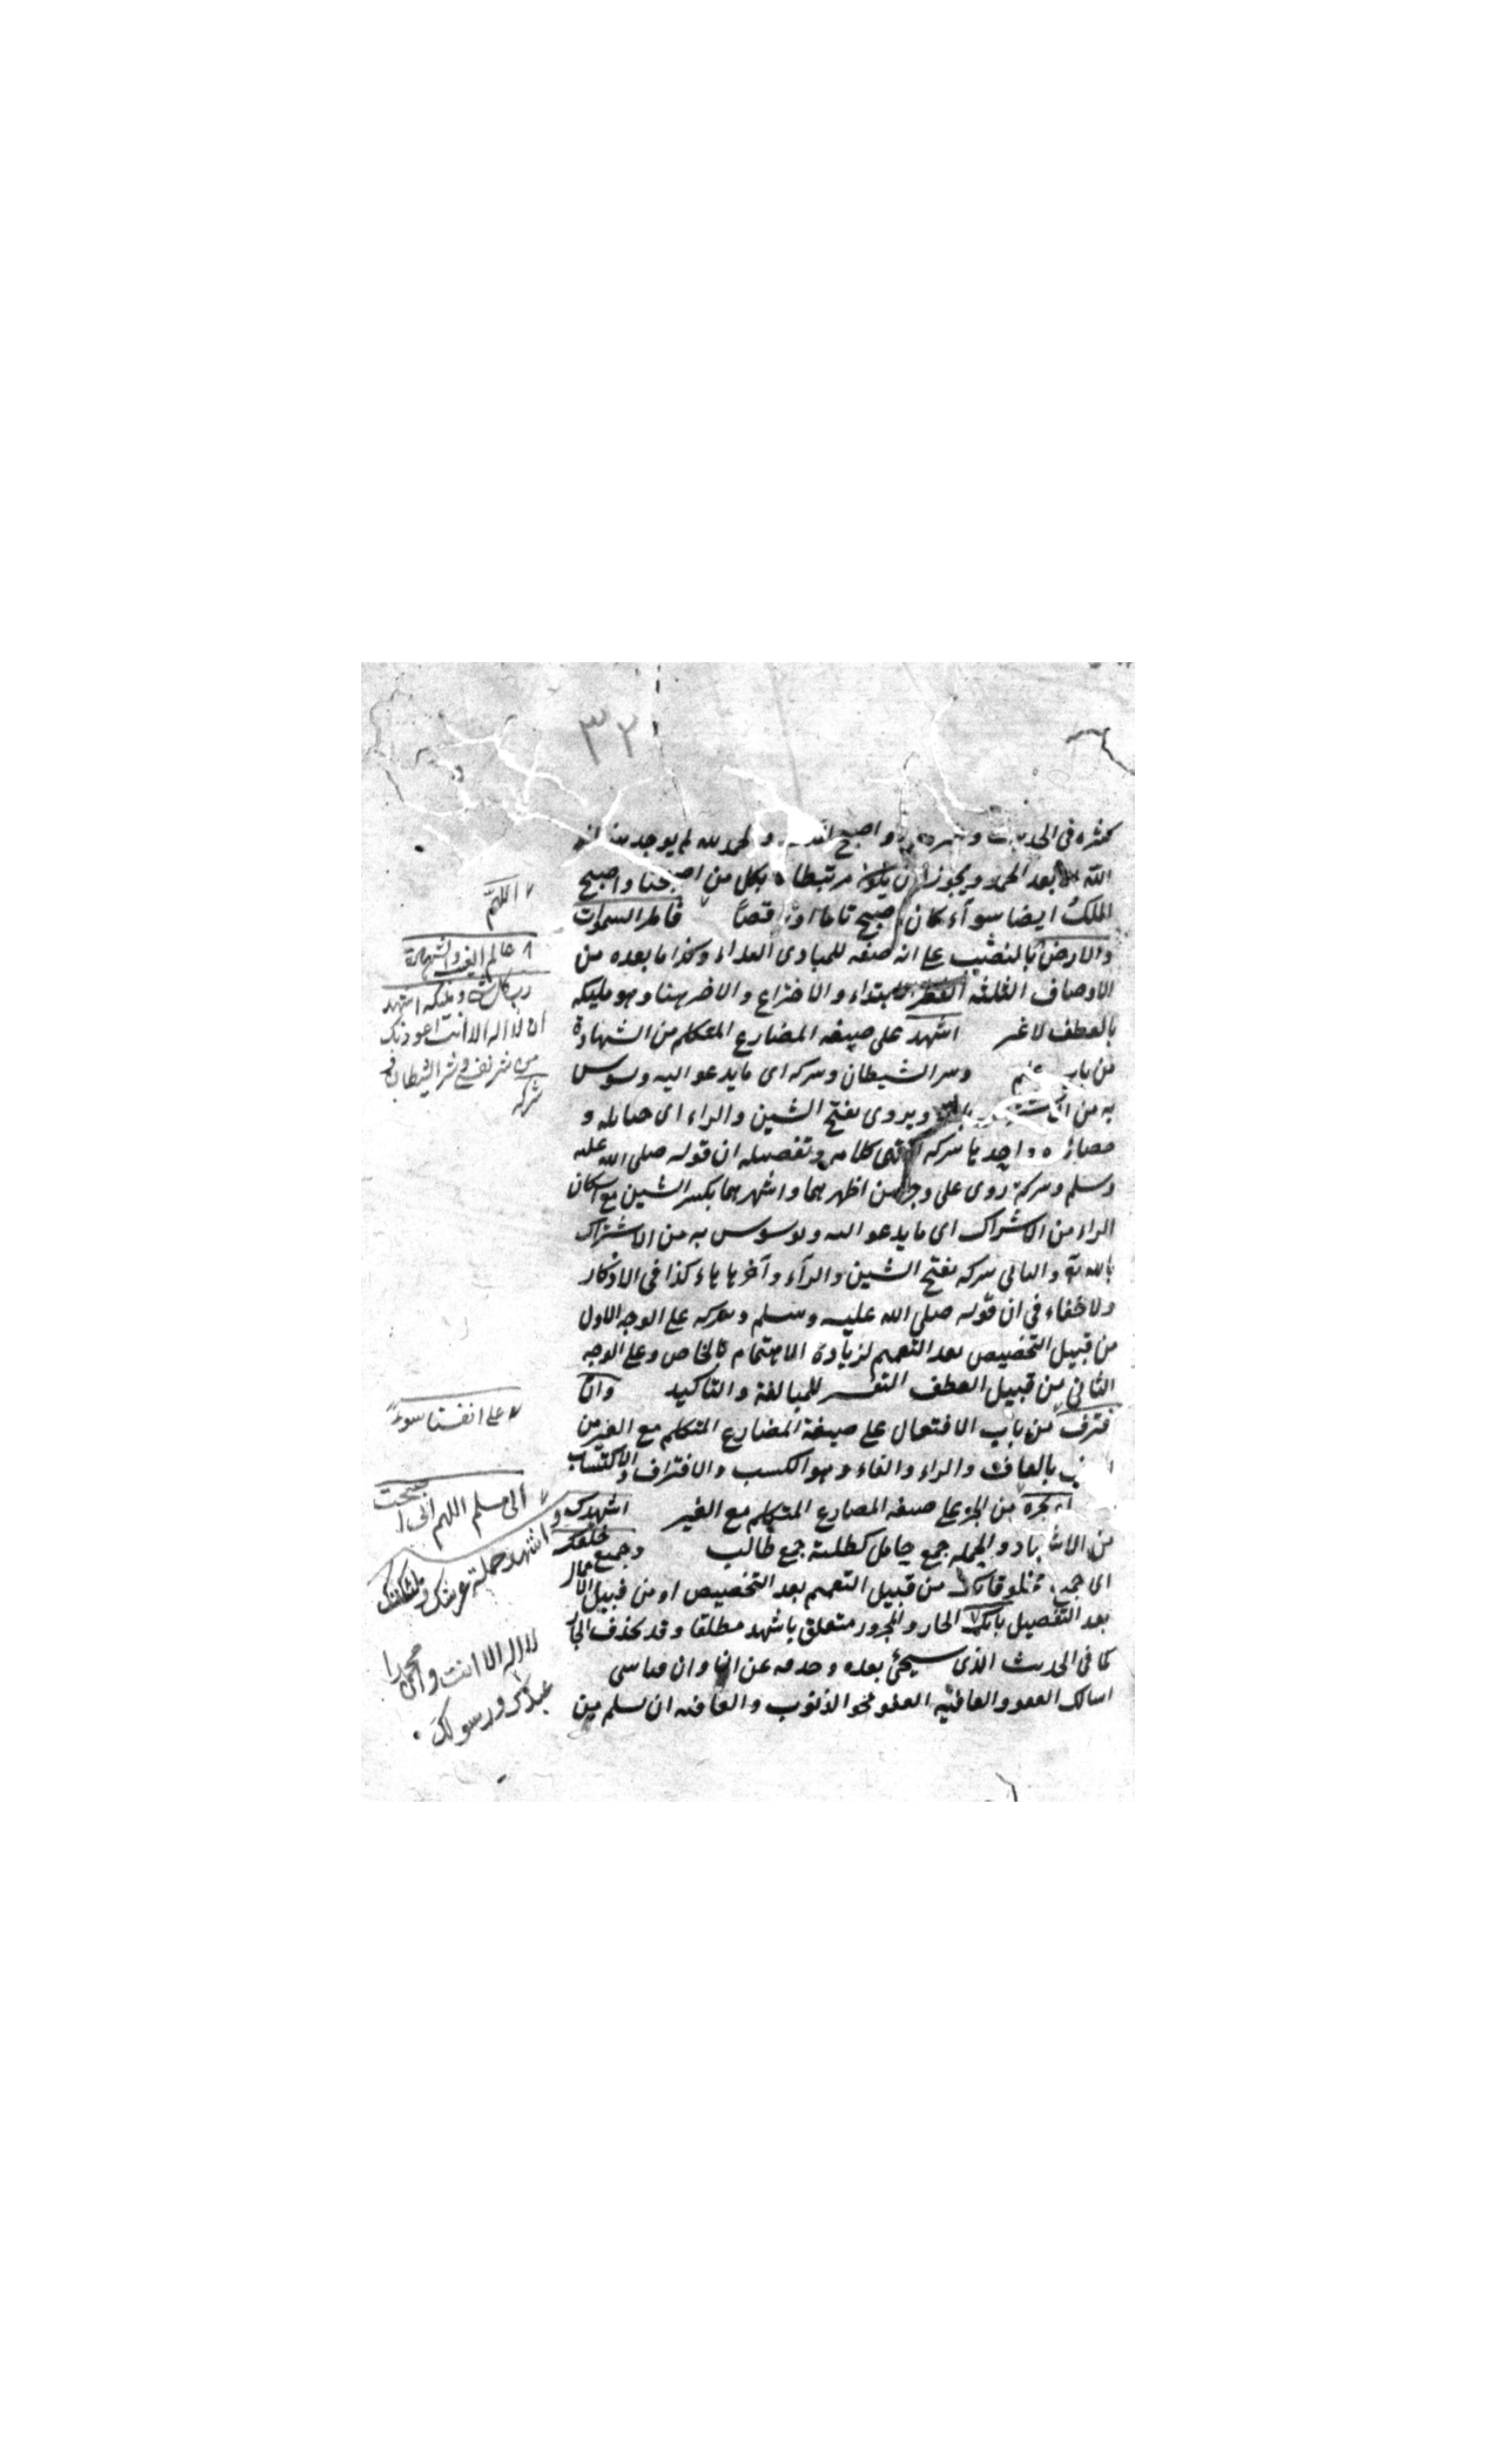 ٣٢
كثيرة في الحديث و واصبح الملك والحمد لله لم يوجد
الله بعد الحمد ويجوز ان يكون مرتبطا بكل من اصبحنا واصبح
الملك ايضا سوآء كان اصبح تاما او ناقصا فاطر السموات
والارض بالنصب على انه صفه للمبادى او كذا ما بعده من
الاوصاف الثلثه الفطر الابتداء والاختراع والاخر هنا وهو مليكه
بالعطف لا غير اشهد على صيغه المضارع المتكلم من الشهادة
من باب علم وشر الشيطان وشركه اى ما يدعو اليه ويوسوس
به من ويروى بفتح الشين والراء اى حبائله و
مصائده واحدها شركه انتهى كلامه وتفصيله ان قوله صلى الله عليه
وسلم وشركه روى على وجهين اظهرهما واشهرهما بكسر الشين مع اسكان
الراء من الاشراك اى ما يدعو اليه ويوسوس به من الاشراك
بالله تع والثانى شركه بفتح الشين والرآء وآخرها هاء كذا فى الاذكار
ولا خفاء فى ان قوله صلى الله عليه وسلم وشركه على الوجه الاول
من قبيل التخصيص بعد التعميم لزيادة الاهتمام بالخاص وعلى الوجه
الثانى من قبيل العطف التفسير للمبالغة والتاكيد وان
نقترف من باب الافتعال على صيغة المضارع المتكلم مع الغير من
بالقاف والراء والفاء وهو الكسب والاقتراف الاكتساب
او نجره من الجر على صيغه المضارع المتكلم مع الغير اشهدك
من الاشهاد والحملة جمع حامل كطلبة جمع طالب وجميع خلقك
اى جميع مخلوقاتك من قبيل التعميم بعد التخصيص او من قبيل الاجمال
بعد التفصيل بانك الجار والمجرور متعلق باشهد مطلقا وقد يحذف الجار
كما فى الحديث الذى سيجئ بعده وحذفه عن ان وان قياسى
اسالك العفو والعافيه العفو محو الذنوب والعافيه ان تسلم من
اللهم
عالم الغيب والشهادة
رب كل شئ ومليكه اشهد
ان لا اله الا انت اعوذ بك
من شر نفسى وشر الشيطان و
شركه
على انفسنا سوءً
الى مسلم اللهم انى اصبحت
اشهدك واشهد حملة عرشك وملائكتك
لا اله الا انت وان محمدا
عبدك ورسولك